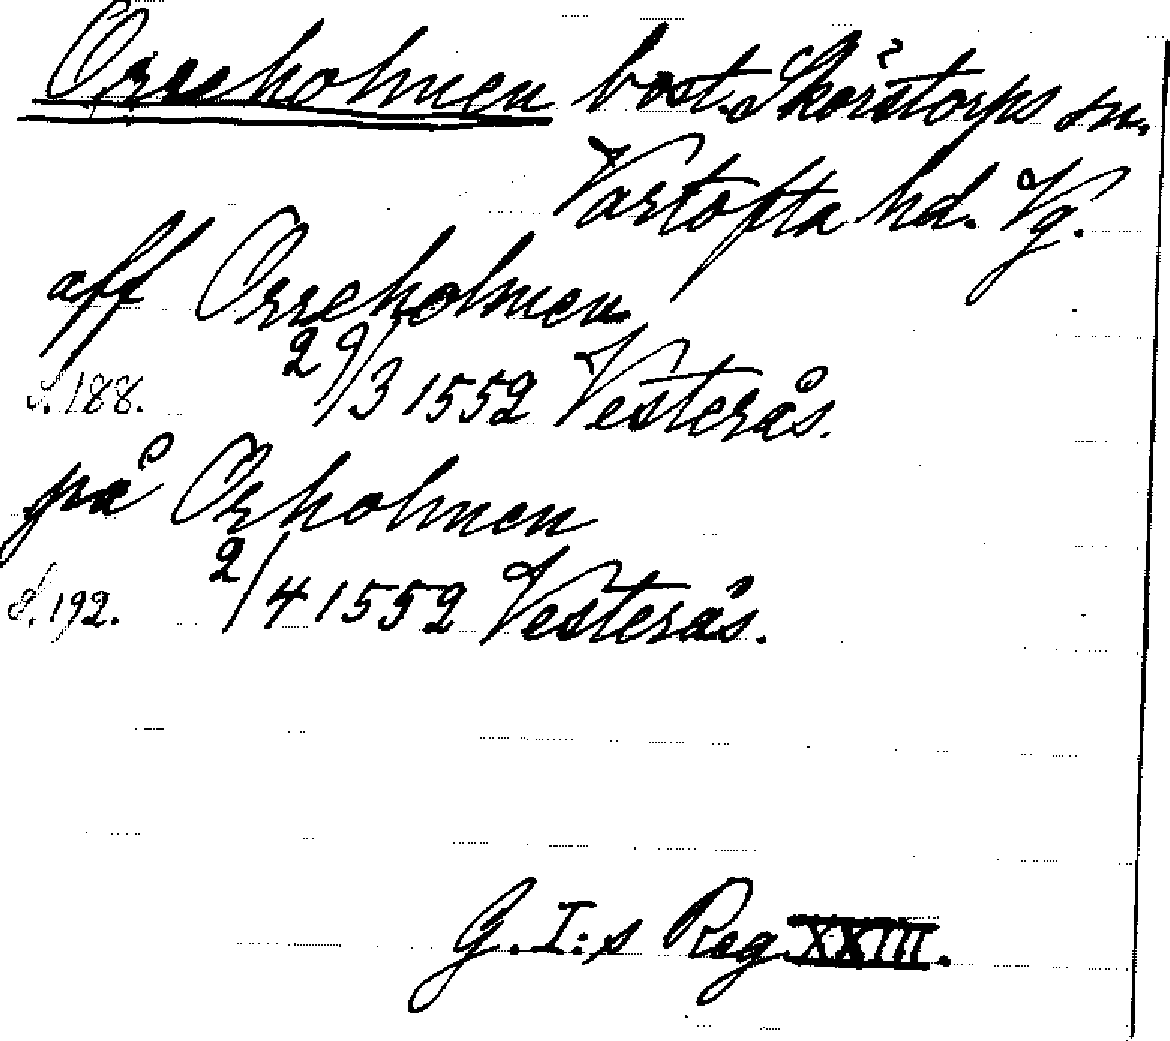 Orreholmen bost. Skörstorps sn.
Vartofta hd. Vg.
aff Orreholmen
s. 188. 29/3 1552 Vesterås.
på Orholmen
s. 192. 2/4 1552 Vesterås.
G. I:s Reg. XXIII.